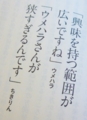 「興味を持つ範囲が
広いですね」ウメハラ
「ウメハラさんが
狭すぎるんです」
ちきりん